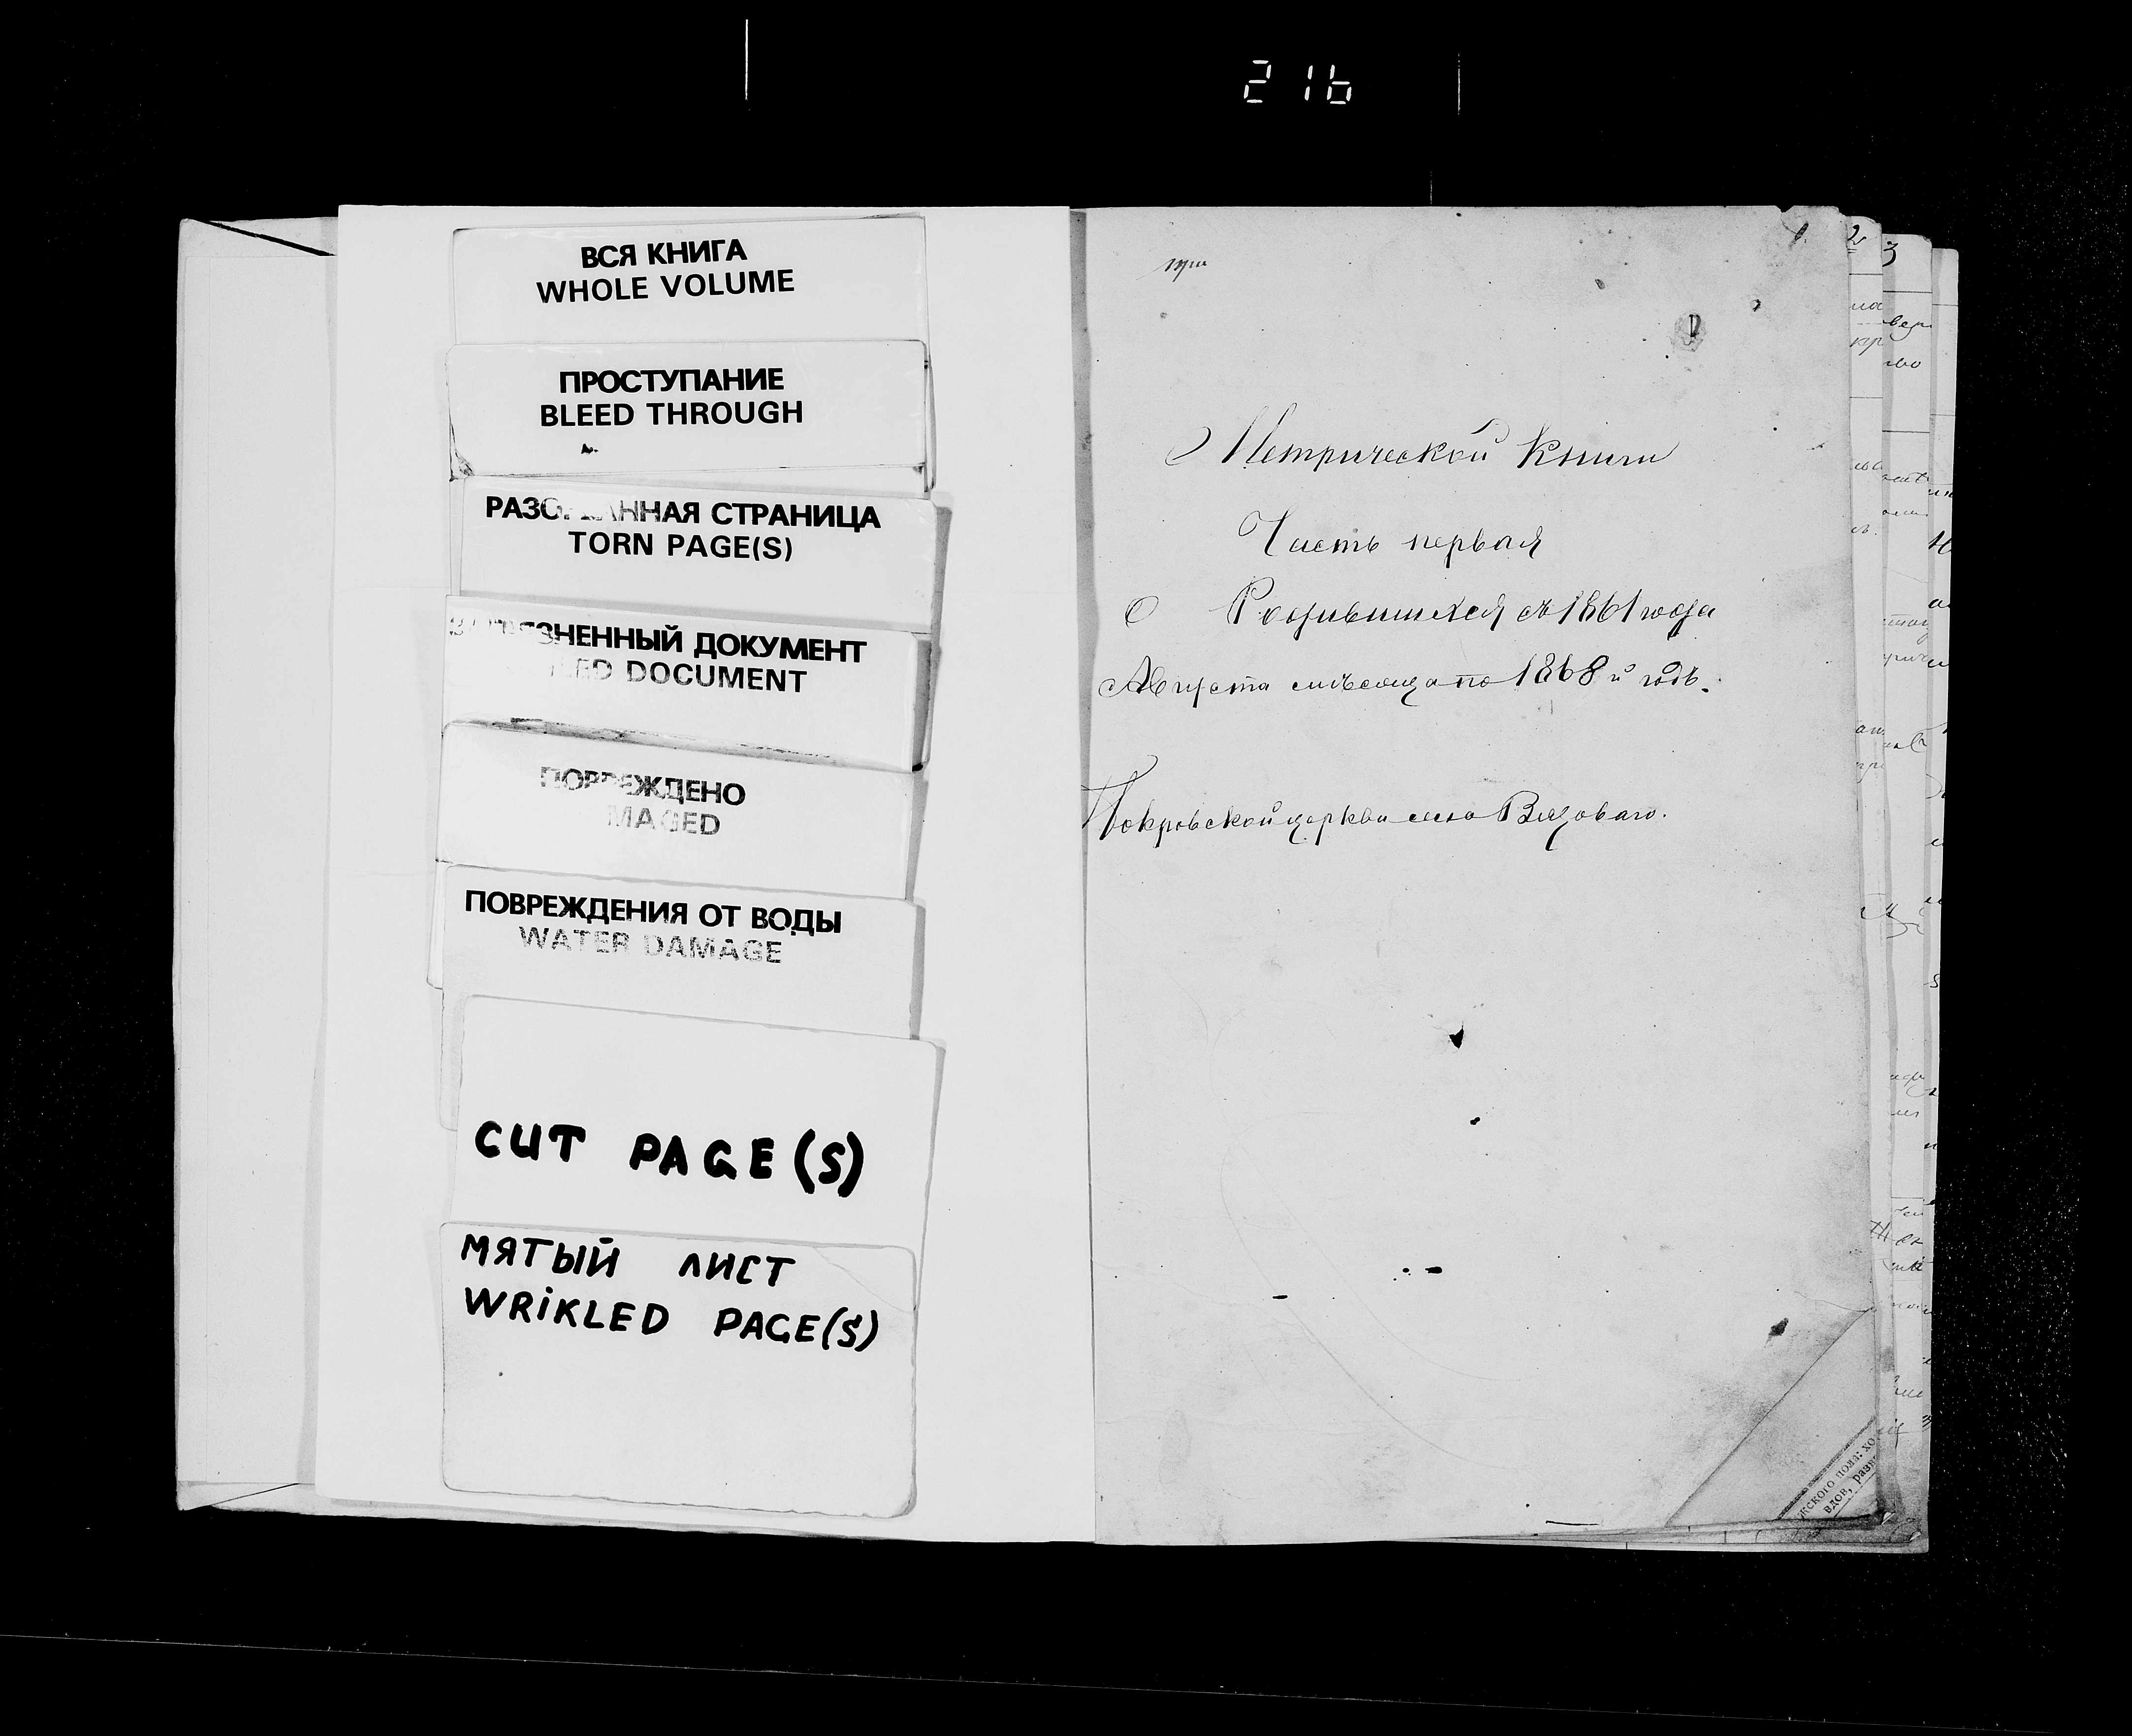 216
ВСЯ КНИГА
WHOLE VOLUME
ПРОСТУПАНИЕ
BLEED THROUGH
РАЗОРВАННАЯ СТРАНИЦА
TORN PAGE(S)
ЗАГРЯЗНЕННЫЙ ДОКУМЕНТ
DOCUMENT
ПОВРЕЖДЕНО
DAMAGED
ПОВРЕЖДЕНИЯ ОТ ВОДЫ
WATER DAMAGE
CUT PAGE(S)
МЯТЫЙ ЛИСТ
WRIKLED PAGE(S)
три
1.
2
3
Метрической Книги
Часть первая
О Родившихся съ 1861 года
Августа мѣсяца по 1868 й годъ.
Покровской церкви села Вязоваго.
жского пола: хо
вдов, разв